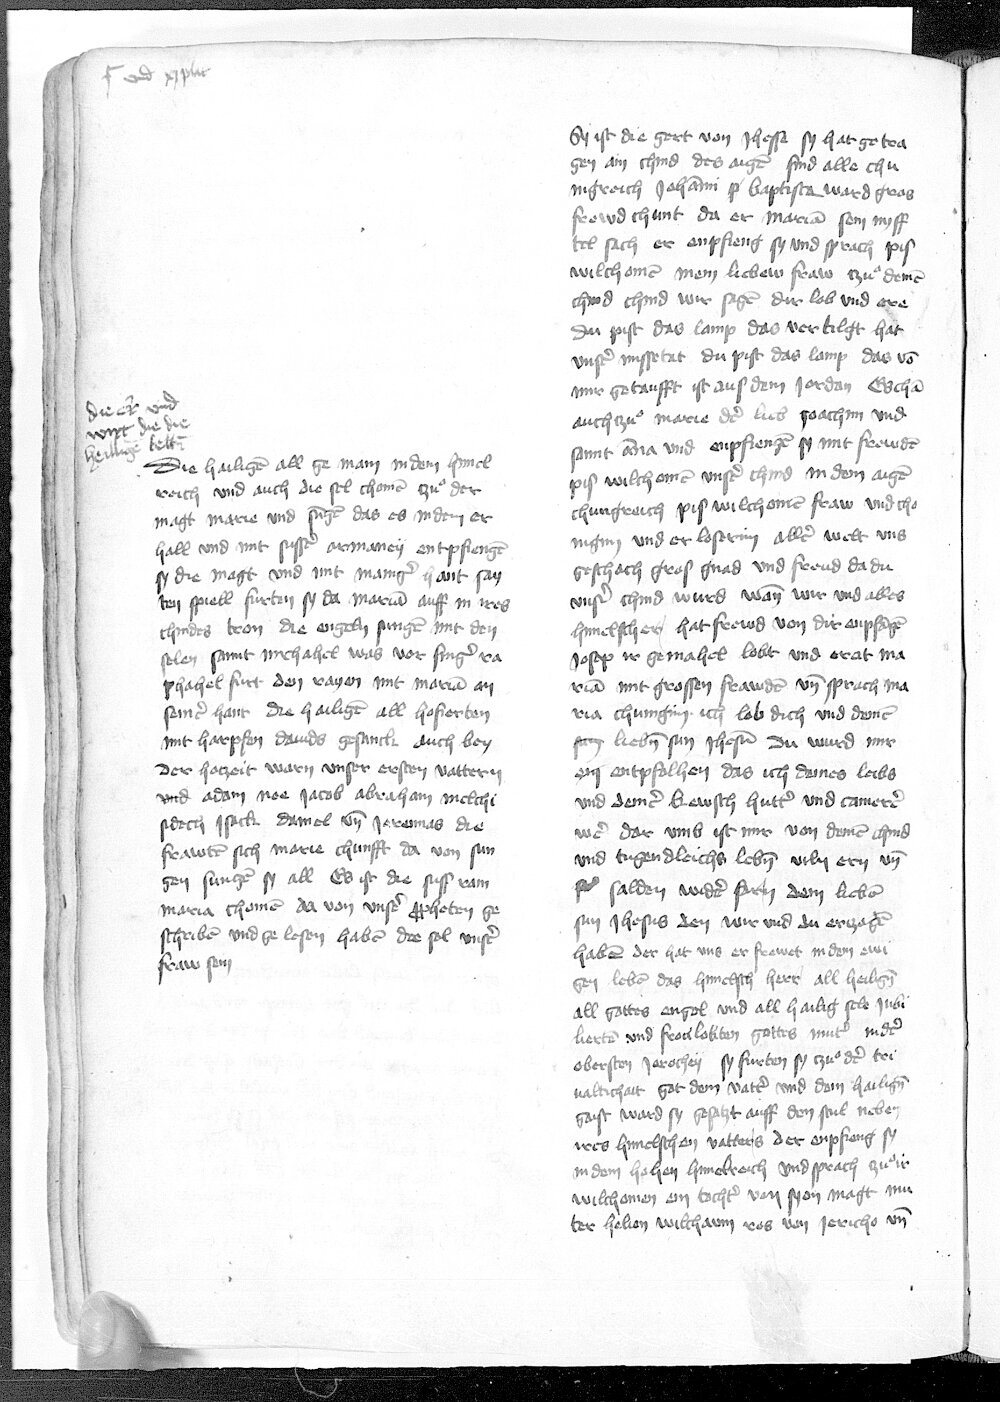 die er und
wirt die die
heilige
Die heiligē all ge main in dem himel
reich und auch die sel chomē czuͦ der
magt marie und sagē das es in dem er
hall und mit sussʼ armaneij entpfiengē
sy die magt und mit manigʼ hant say
ten spiell furten sy da mariā auff in ires
chindes tron die engeln sungē mit den
selen sannt michahel was vor singʼ ra
phahel furt den rayen mit mariā an
seinʼ hant die heiligē all hofierten
mit harpfen dauids gesanck auch bey
der hoczeit warn unser ersten vattern
und adam noe Jacob abraham melchi
sidech Jsack daniel vn̄ Jeremias die
frawtē sich marie chunfft da von sun
gen sungē sy all Es ist die suss rain
maria chomē da von unsʼ propheten ge
schribē und ge lesen habē die sol unsʼ
fraw sein
Sy ist die gert von Jhesse sy hat getra
gen ain chind des aigē sind alle chu
nigreich Johāni baptista ward gros
frewd chunt da er mariā sein
tel sach er enpfieng sy und sprach pis
wilchomē mein liebew fraw czuͦ deinē
chind wir sagē dir lob und ere
Du pist das lamp das vertilgt hat
unsʼ missetat du pist das lamp das vō
mir getaufft ist aus dem Jordan Es chā
auch czuͦ marie dʼ lieb Joachim und
sannt āna und enpfiengē sy mit frewdē
pis wilchomē unsʼ chind in dem aigē
chungreich pis wilchomē fraw und cho
nigin und erloserin allʼ welt uns
geschach gros gnad und freud da du
unsʼ chind wurd wan̄ wir und alles
himelscher hat frewd von dir enpfāgē
Josep ir gemahel lobt und erat ma
riā mit grossen frawdē vn̄ sprach ma
ria chunigin ich lob dich und deinē
liebn̄ sun Jhesū Du wurd mir
enpfolhen das ich deines leibs
und deinʼ kewsch huttʼ und camerʼ
wʼ dar umb ist mir von deinē chind
und tugendleichs lebn̄ vil ern vn̄
salden widʼ farn dem liebē
sun Jhesus den wir und du erczogē
habē der hat uns er frewet in dem ewi
gen lebē das himelsch herr all heilign̄
all gottes engel und all heilig sele Jubi
liertē und frolokten gottes mutʼ in dʼ
obersten Jerochey sy furten sy czuͦ dʼ tri
ualtichait got dem vattʼ und dem hailign̄
gaist ward sy gesaczt auff den stul neben
ires himelschen vatters der enpfieng sy
in dem hohen himelreich und sprach czuͦ ir
wilchomen ein tochtʼ von syon magt mu
ter ros von Jericho vn̄